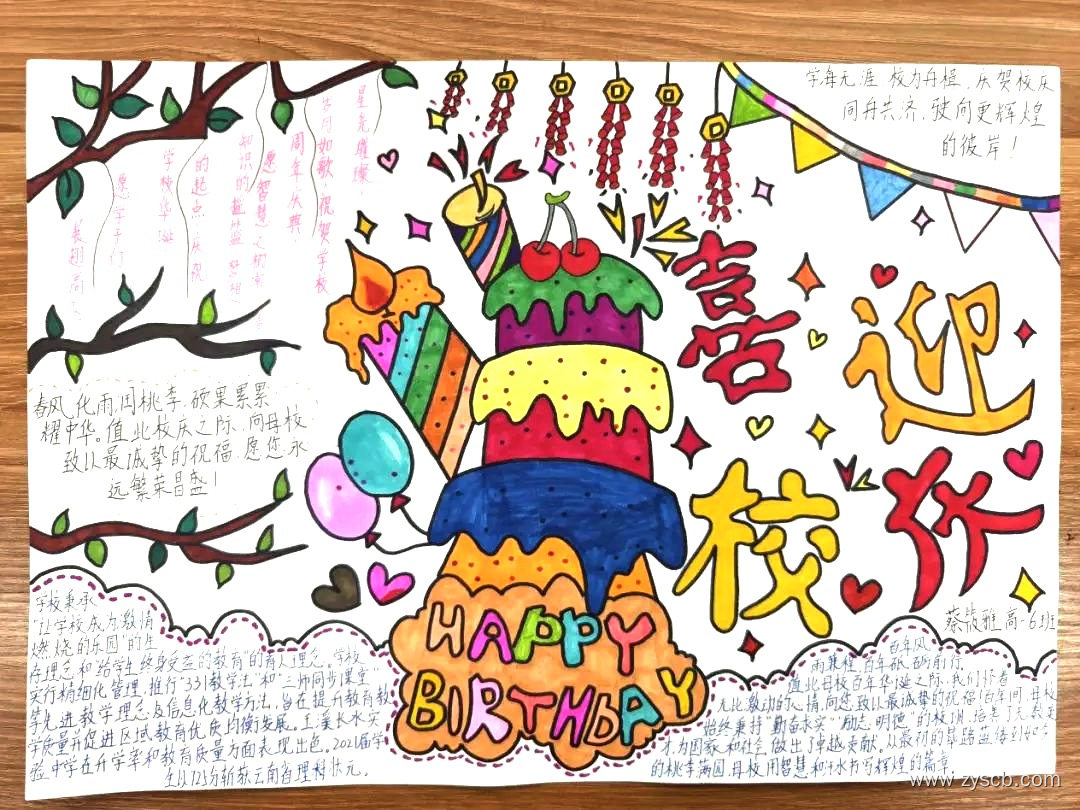 学海无涯 校为舟楫，庆贺校庆
同舟共济，驶向更辉煌
的彼岸！
星光璀璨
岁月如歌，祝贺学校
周年庆典，
愿智慧之
知识的摇篮
的起点，庆祝
学校华诞
愿学子们
展翅高飞
喜迎
校庆
春风化雨，国桃李，硕果累累
耀中华。值此校庆之际，向母校
致以最诚挚的祝福，愿您永
远繁荣昌盛！
HAPPY
BIRTHDAY
蔡筱雅 高一6班
学校秉承
"让学校成为激情
燃烧的乐园"的生
存理念和"给学生终身受益的教育"的育人理念。学校
实行精细化管理，推行"331教学法"和"三师同步课堂"
等先进教学理念及信息化教学方法，旨在提升教育教
学质量并促进区域教育优质均衡发展。玉溪长水实
验中学在升学率和教育质量方面表现出色。2021届学
生以725分斩获云南省理科状元。
百年风
雨兼程，百年砥砺前行。
值此母校百年华诞之际，我们怀着
无比激动的心情，向您致以最诚挚的祝福！百年间，母校
始终秉持"勤奋求实""励志明德"的校训，培养了无数英
才，为国家和社会做出了卓越贡献。从最初的筚路蓝缕到如今
的桃李满园，母校用智慧和汗水书写辉煌的篇章。
www.zyscb.com